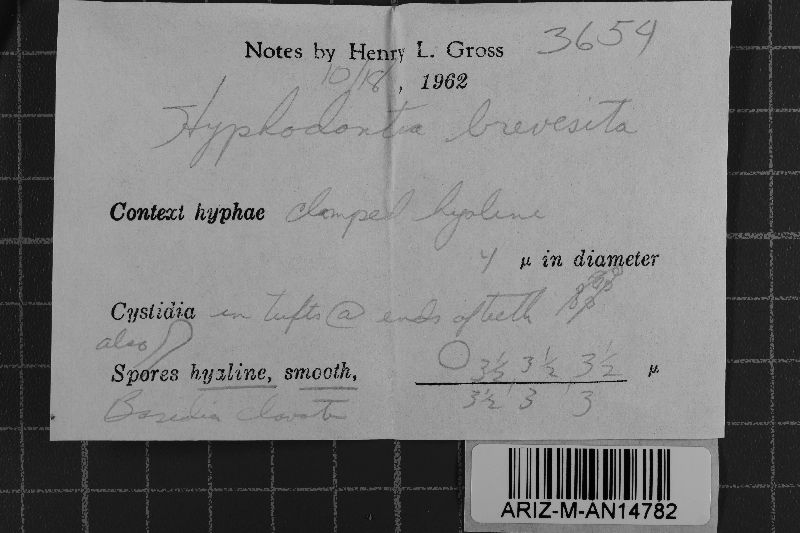 Notes by Henry L. Gross 3654
10/18, 1962
Hyphodontia brevesita
Context hyphae clamped hyaline
4 µ in diameter
Cystidia in tufts @ ends of teeth
also
Spores hyaline, smooth, 3½ 3½ 3½ µ
3½ 3 3
Basidia clavate
ARIZ-M-AN14782